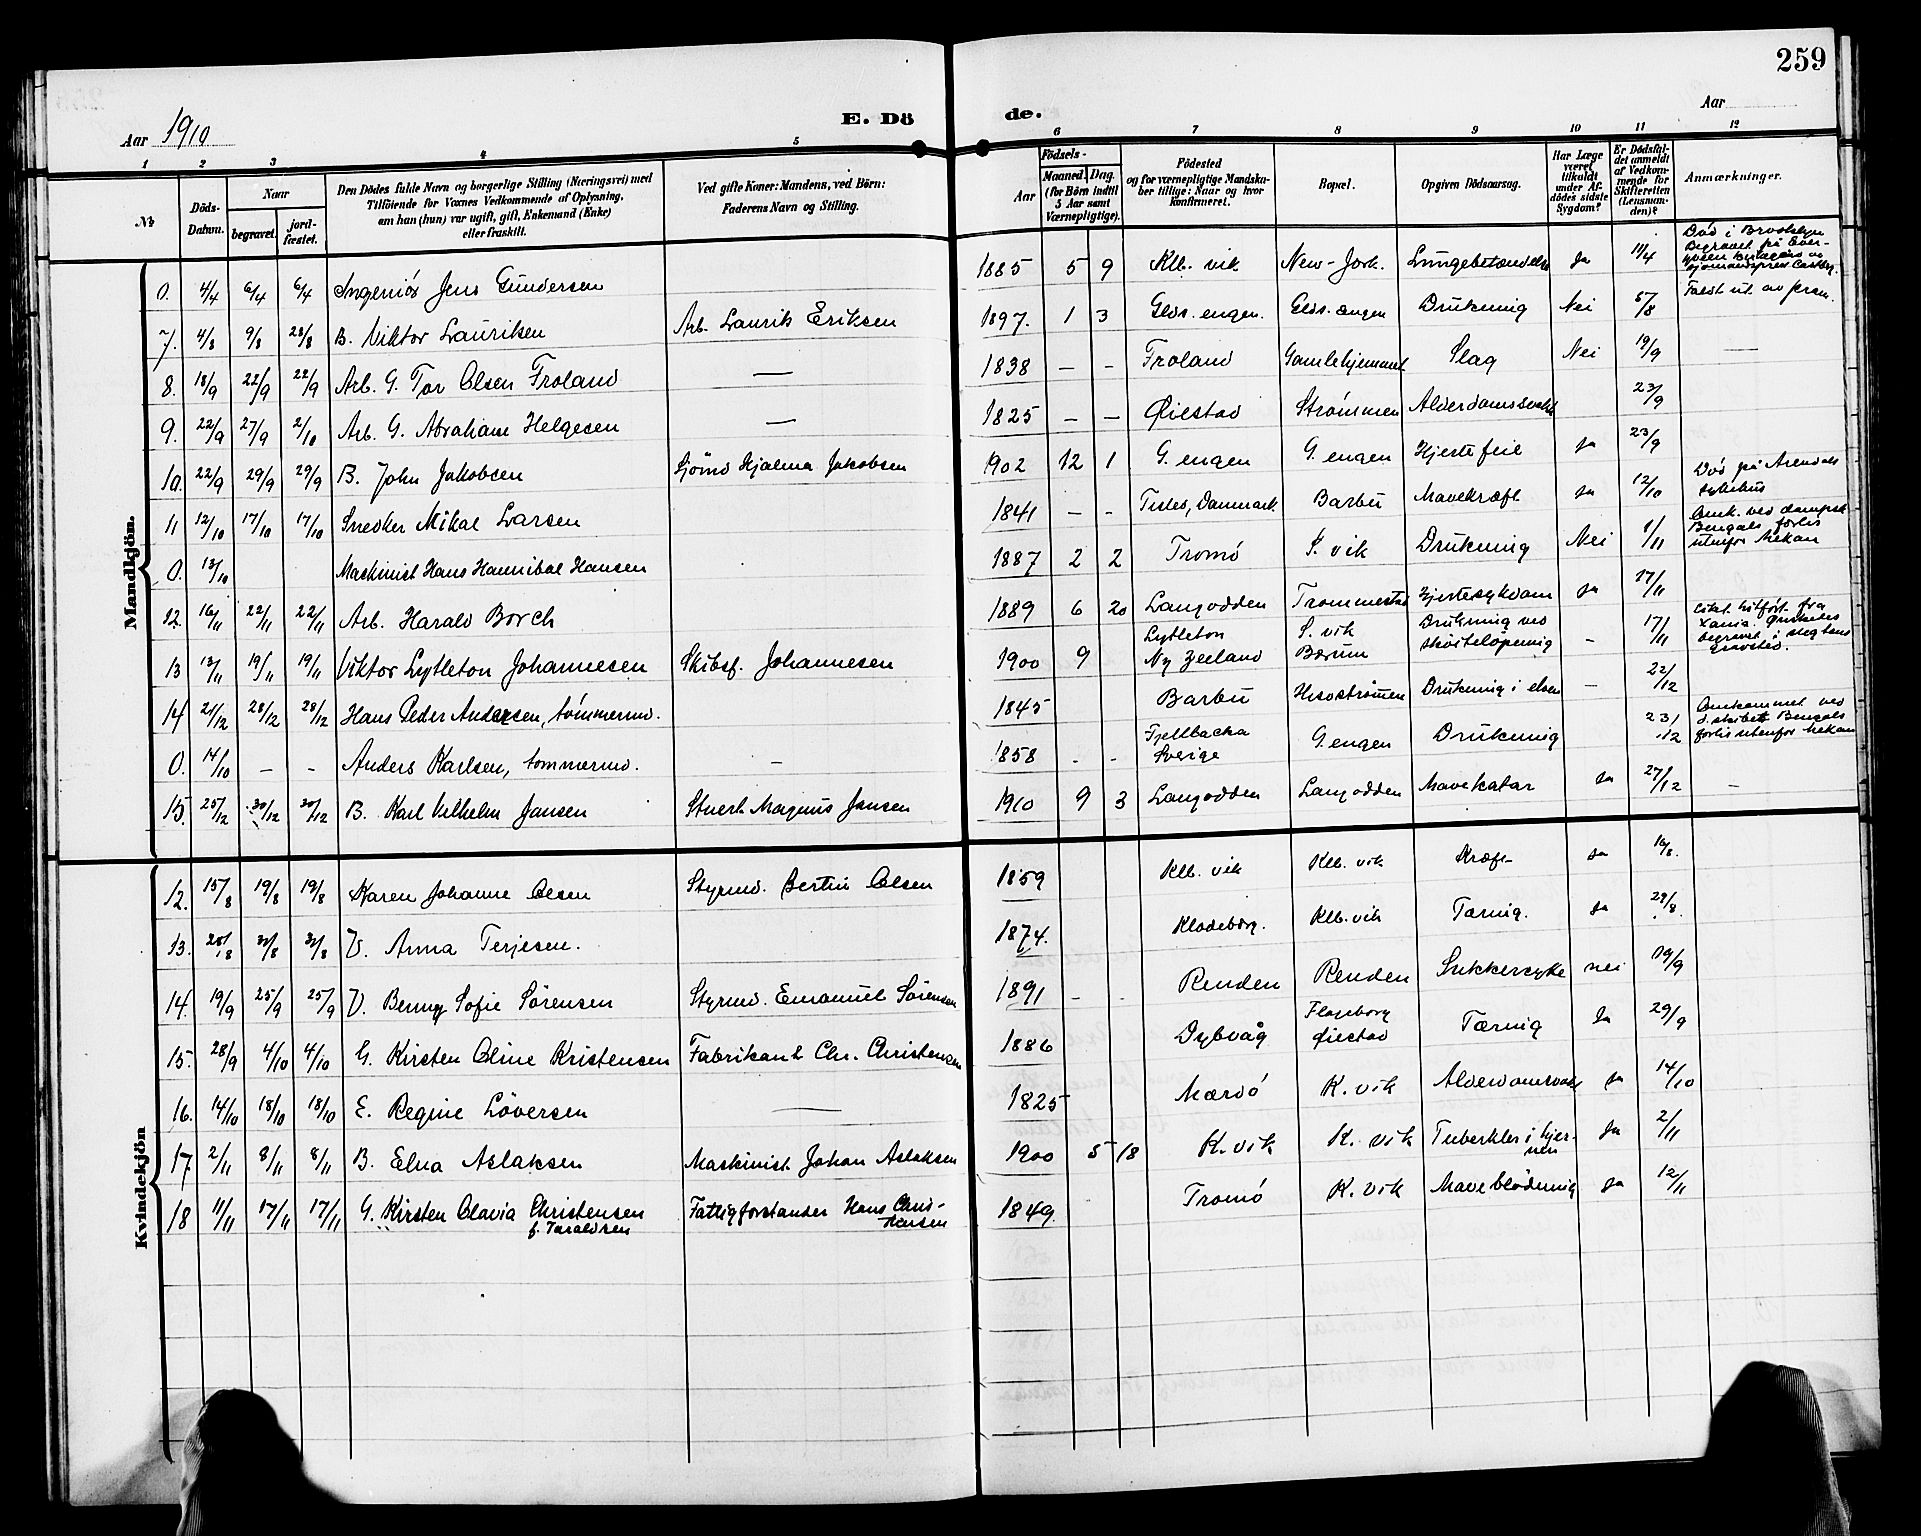 259
Aar 1910
E. Dö
de.
Aar
1 2 3 4 5 6 7 8 9 10 11 12
No
Döds-Datum.
Naar
begravet.
jord-fæstet.
Den Dödes fulde Navn og borgerlige Stilling (Næringsvei) med
Tilföiende for Voxnes Vedkommende af Oplysning,
om han (hun) var ugift, gift, Enkemand (Enke)
eller fraskilt.
Ved gifte Koner: Mandens, ved Börn:
Faderens Navn og Stilling.
Födsels-
Aar
Maaned. Dag.
(for Börn indtil
5 Aar samt
Værnepligtige).
Födested
og for værnepligtige Mandska-
ber tillige: Naar og hvor
konfirmeret.
Bopæl.
Opgiven Dödsaarsag.
Har Læge
været
tilkaldt
under Af-
dödes sidste
Sygdom?
Er Dödsfal-
det anmeldt
af Vedkom-
mende for
Skifteretten
(Lensman-
den)?
Anmærkninger.
Mandkjön.
0. 4/4 6/4 6/4 Ingeniör Jens Gundersen 1885 5 9 Klb. vik New-York. Lungebetændelse Ja 11/4 Död i Brooklyn Begravet på Ever-
7. 4/8 9/8 28/8 B. Viktor Lauriksen Arb. Laurik Eriksen 1897. 1 3 Glds. engen. Glds. ængen Drukning Nei 5/8 Faldt ut av pram.
8. 18/9 22/9 22/9 Arb. G. Tor Olsen Froland — 1838 — - Froland Gamlehjemmet Slag Nei 19/9 —
9. 22/9 27/9 2/10 Arb. G. Abraham Helgesen — 1825 — — Øiestad Strømmen Alderdomssvakh 23/9
10. 22/9 29/9 29/9 B. John Jakobsen Sjömd Hjalma Jakobsen 1902 12 1 G. engen G. engen Hjertefeil ja 23/9
11 12/10 17/10 17/10 Snedker Mikal Larsen 1841 - - Tisted, Danmark Barbu Mavekræft ja 12/10 Död på Arendals sykehus
0. 13/10 Maskinist Hans Hannibal Hansen 1887 2 2 Tromö S. vik Drukning Nei 1/11 Omk. ved dampsk Bengals forlis utenfor Mekan
12. 16/11 22/11 22/11 Arb. Harald Borch 1889 6 20 Langodden Trommestad Hjertesykdom ja 17/11
13 13/11 19/11 19/11 Viktor Lyttleton Johannesen Skibsf. Johannesen 1900 9 Lyttleton Ny Zeeland S. vik Bærum Drukning ved skøitelöpning — 17/11
14 21/12 28/12 28/12 Hans Peder Andersen, tömmermd. 1845 Barbu Hisøströmmen Drukning i elven — 22/12
0. 14/10 — - Anders Karlsen, tommermd. — 1858 - - Fjellbacka Sverige G. engen Drukning 23/12 Omkommet ved d.skibet Bengals forlis utenfor Mekan
15. 25/12 30/12 30/12 B. Karl Vilhelm Jansen Stuert Magnus Jansen 1910 9 3 Langodden Langodden Mavekatar ja 27/12 —
Kvindekjön
12. 15/8 19/8 19/8 Karen Johanne Olsen Styrmd. Bertin Olsen 1859 Klb. vik Klb. vik Kræft ja 16/8.
13. 28/8 31/8 31/8 V. Anna Terjesen. 1874. Klodeborg. Klb. vik Tæring. ja 29/8.
14. 19/9 25/9 25/9 V. Benny Sofie Sörensen Styrmd. Emanuel Sörensen 1891 - - Renden Renden Sukkersyke nei 19/9
15. 28/9 4/10 4/10 G. Kirsten Oline Kristensen Fabrikant Chr. Christensen 1886 Dybvåg Flageborg Øiestad Tæring Ja 29/9
16. 14/10 18/10 18/10 E. Regine Löversen — 1825 Mærdö K. vik Alderdomsvakh ja 14/10
17. 2/11 8/11 8/11 B. Elna Aslaksen Maskinist Johan Aslaksen 1900 5 18 K. vik K. vik Tuberkler i hjer-nen ja 2/11
18 11/11 17/11 17/11 G. Kirsten Olavia Christensen f. Taraldsen Fattigforstander Hans Chris-tensen 1849. Tromö K. vik Maveblödning ja 12/11